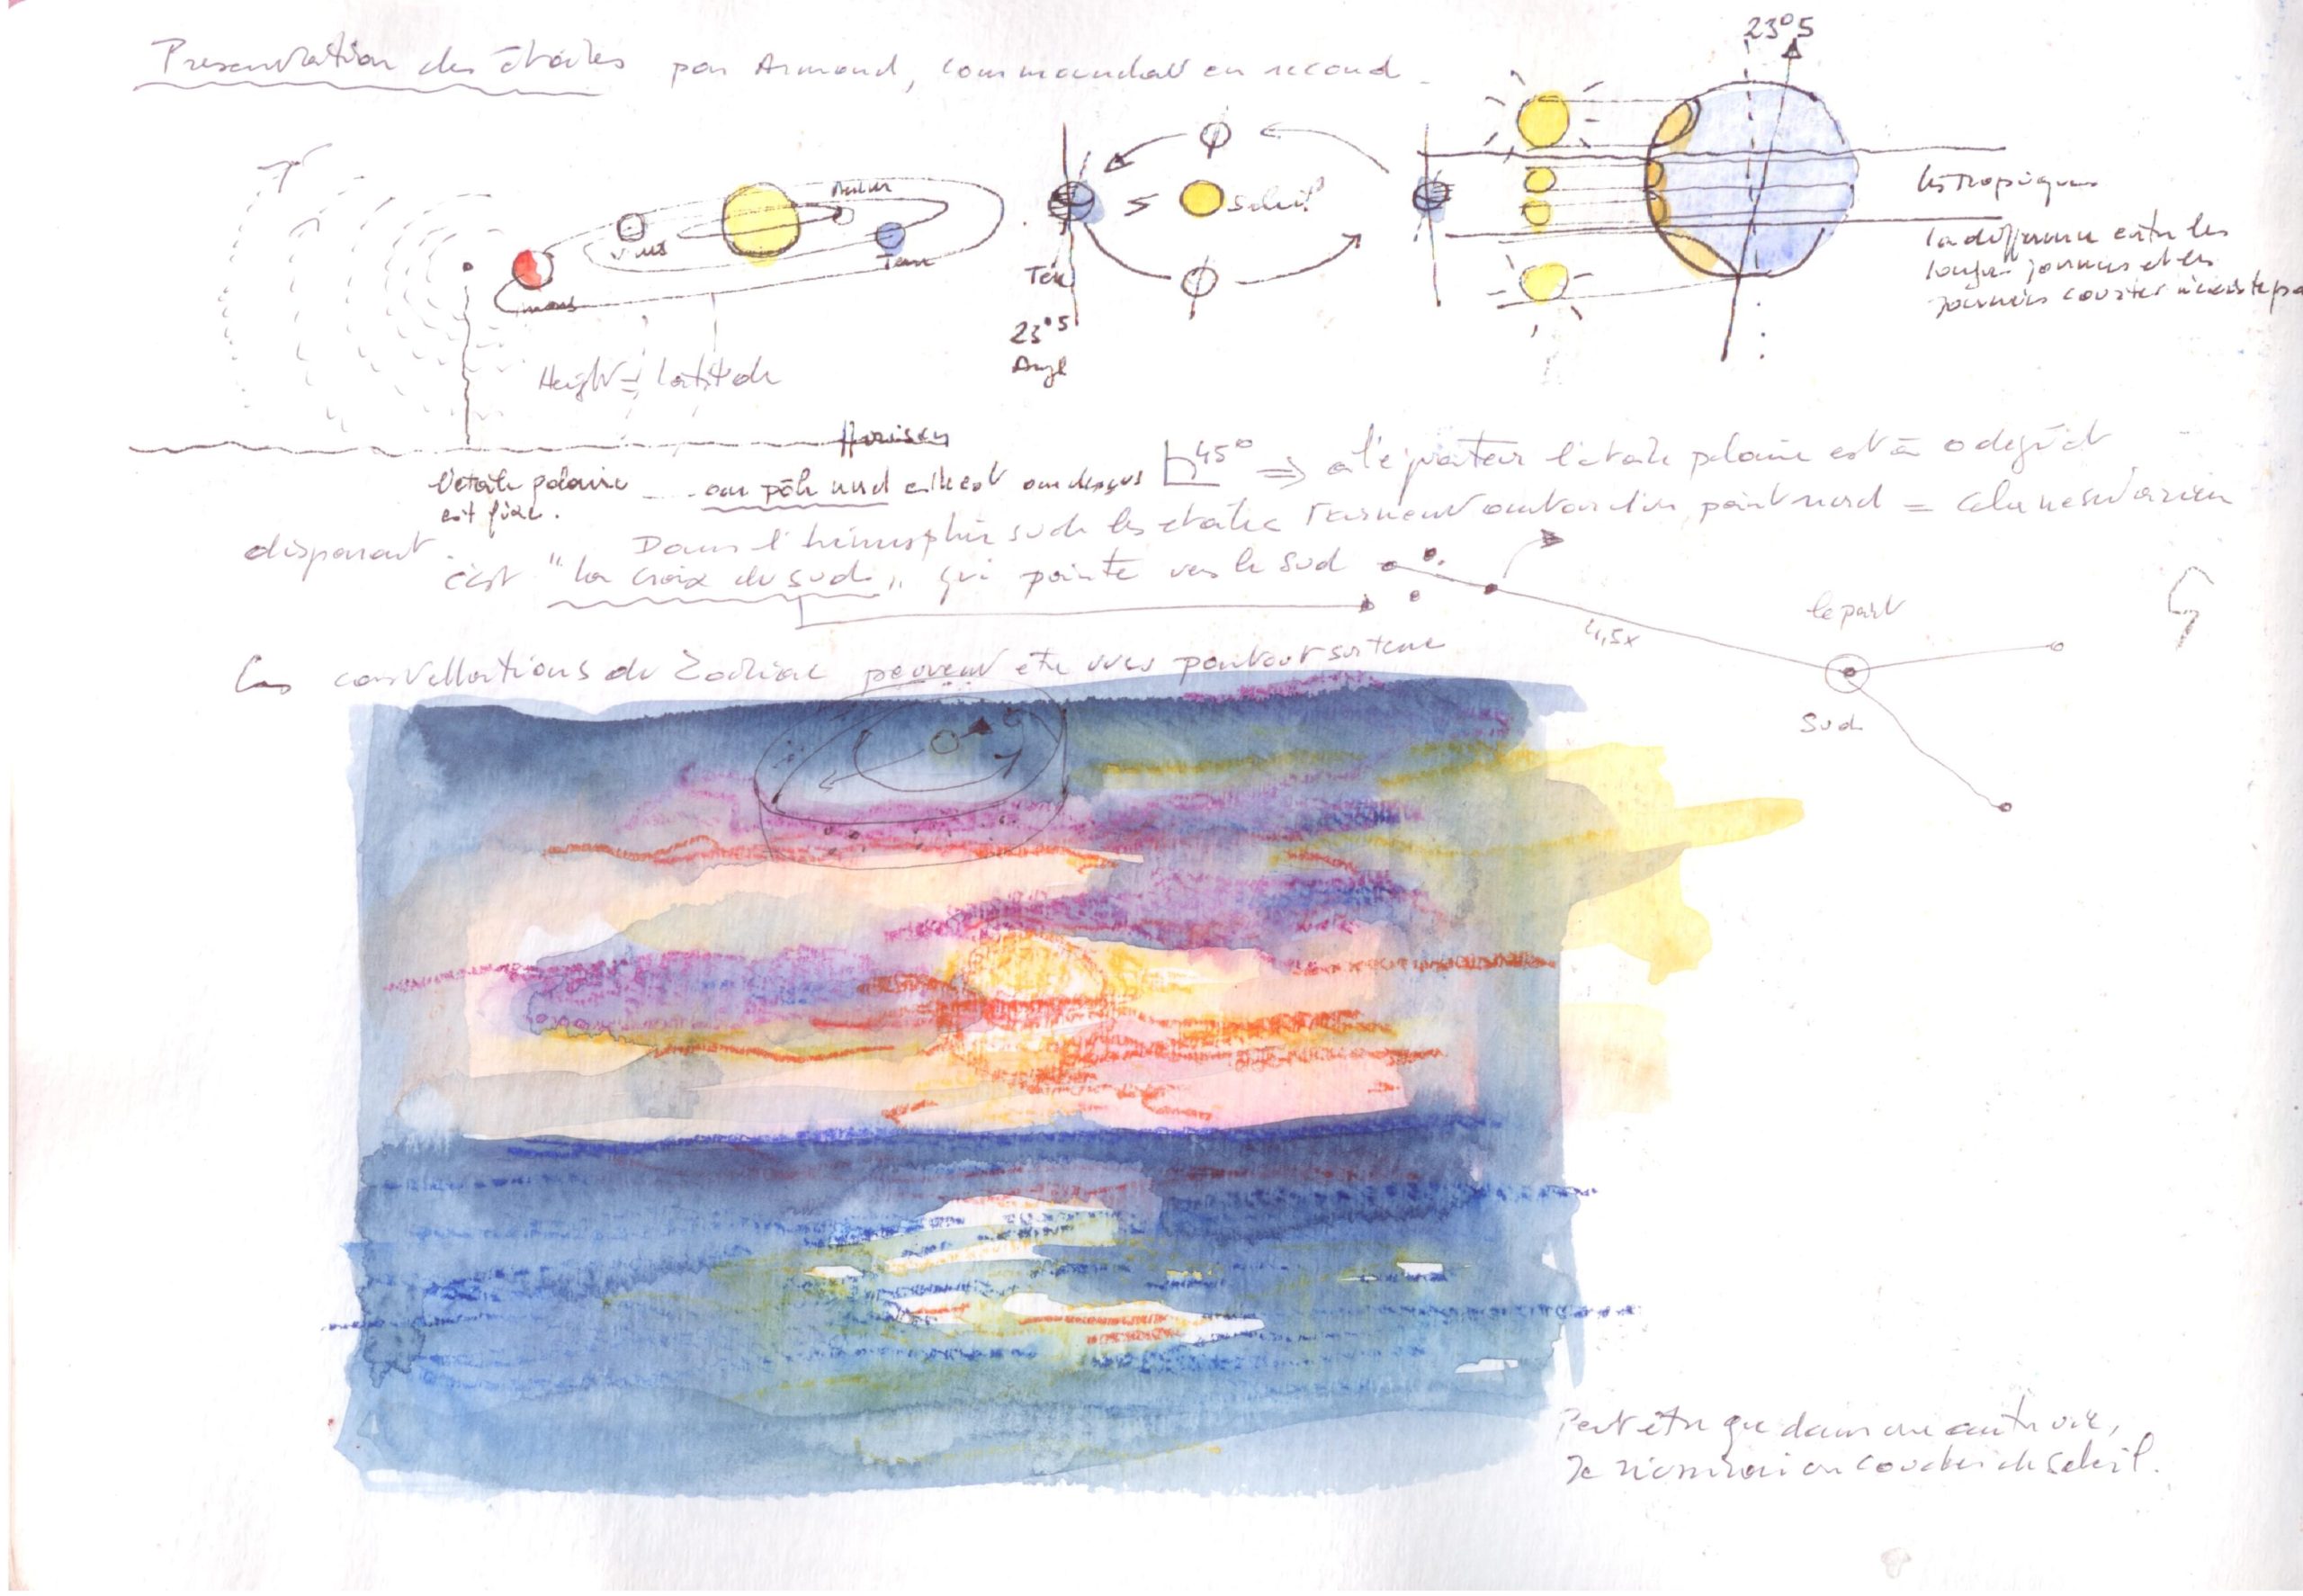 Presentation des étoiles par Armand, commandant en second
23°5
Venus
Terre
mars
Soleil
Terre
23°5
Angl
les tropiques
la différence entre les
longues journées et les
journées courtes n'existe pas
Height = latitude
Horison
l'étoile polaire
est fixe.
au pôle nord elle est au dessus
45°
⇒ a l'équateur l'étoile polaire est à 0 degré et
disparait
Dans l'hémisphère sud les étoiles tournent autour d'un point nord = cela ne sert a rien
c'est "la croix du sud" qui pointe vers le sud
4,5x
le point
Sud
Les constellations du Zodiac peuvent être vues partout sur terre
Peut être que dans une autre vie,
Je réussirai un coucher de soleil.